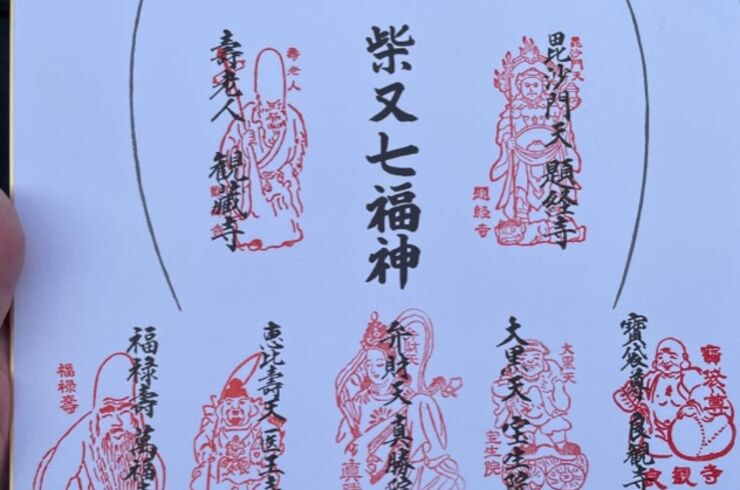 毘沙門天 題経寺
毘沙門天
題経寺
柴又七福神
壽老人 観藏寺
壽老人
寶袋尊 良観寺
寶袋尊
良観寺
大黒天 宝生院
大黒天
宝生院
弁財天 真勝
弁財天
真勝
恵比壽天 医王寺
福禄壽 萬福
福禄寿